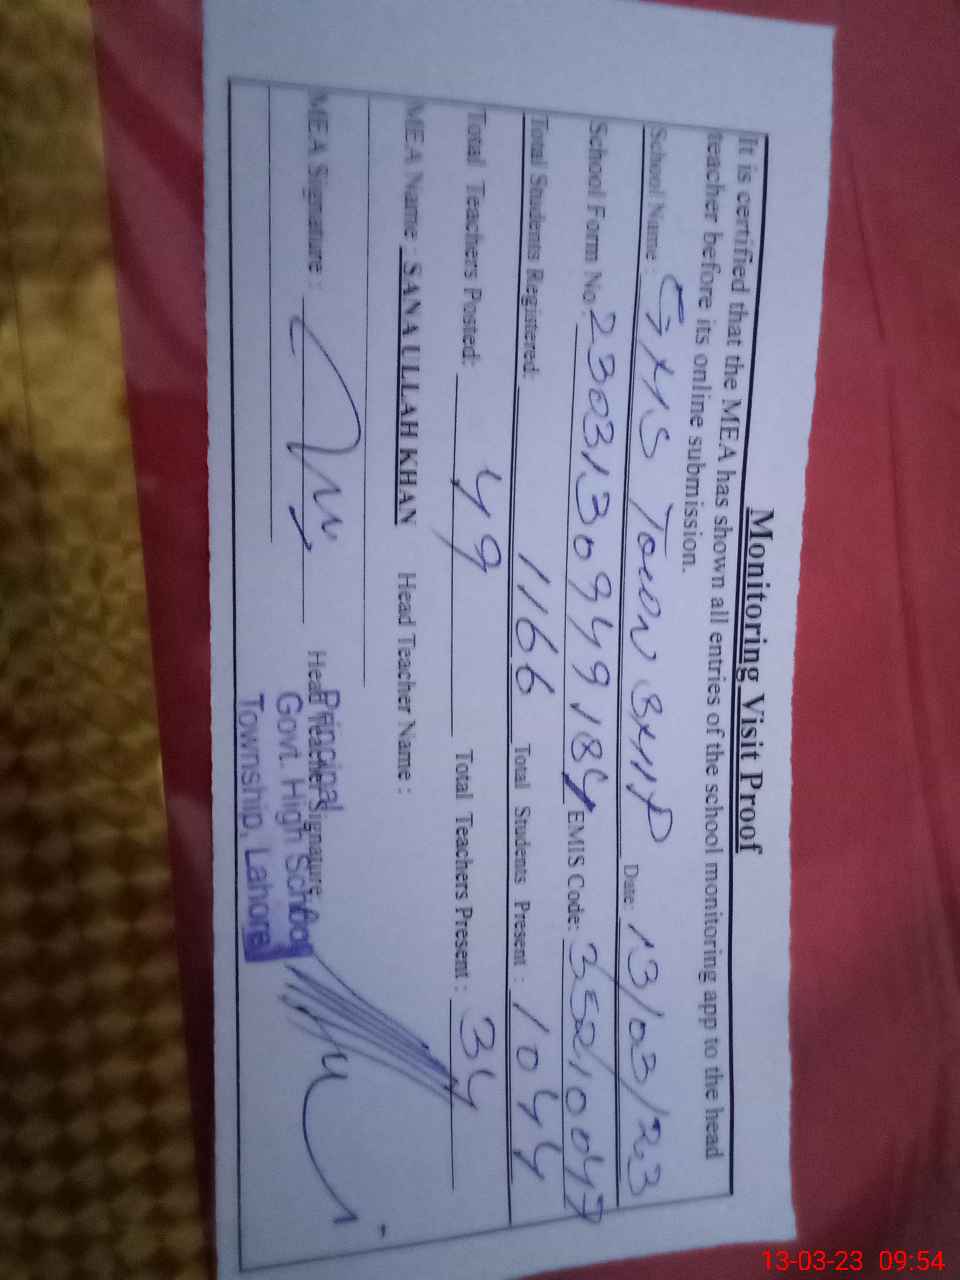 Monitoring Visit Proof
It is certified that the MEA has shown all entries of the school monitoring app to the head
teacher before its online submission.
School Name : GHS Town SHIP Date: 13/03/23
School Form No: 230313099499184 EMIS Code: 35210047
Total Students Registered: 1166 Total Students Present : 1044
Total Teachers Posted: 49 Total Teachers Present : 34
MEA Name : SANA ULLAH KHAN Head Teacher Name :
MEA Signature : Head Teacher Signature
Principal
Govt. High School
Township, Lahore
13-03-23 09:54